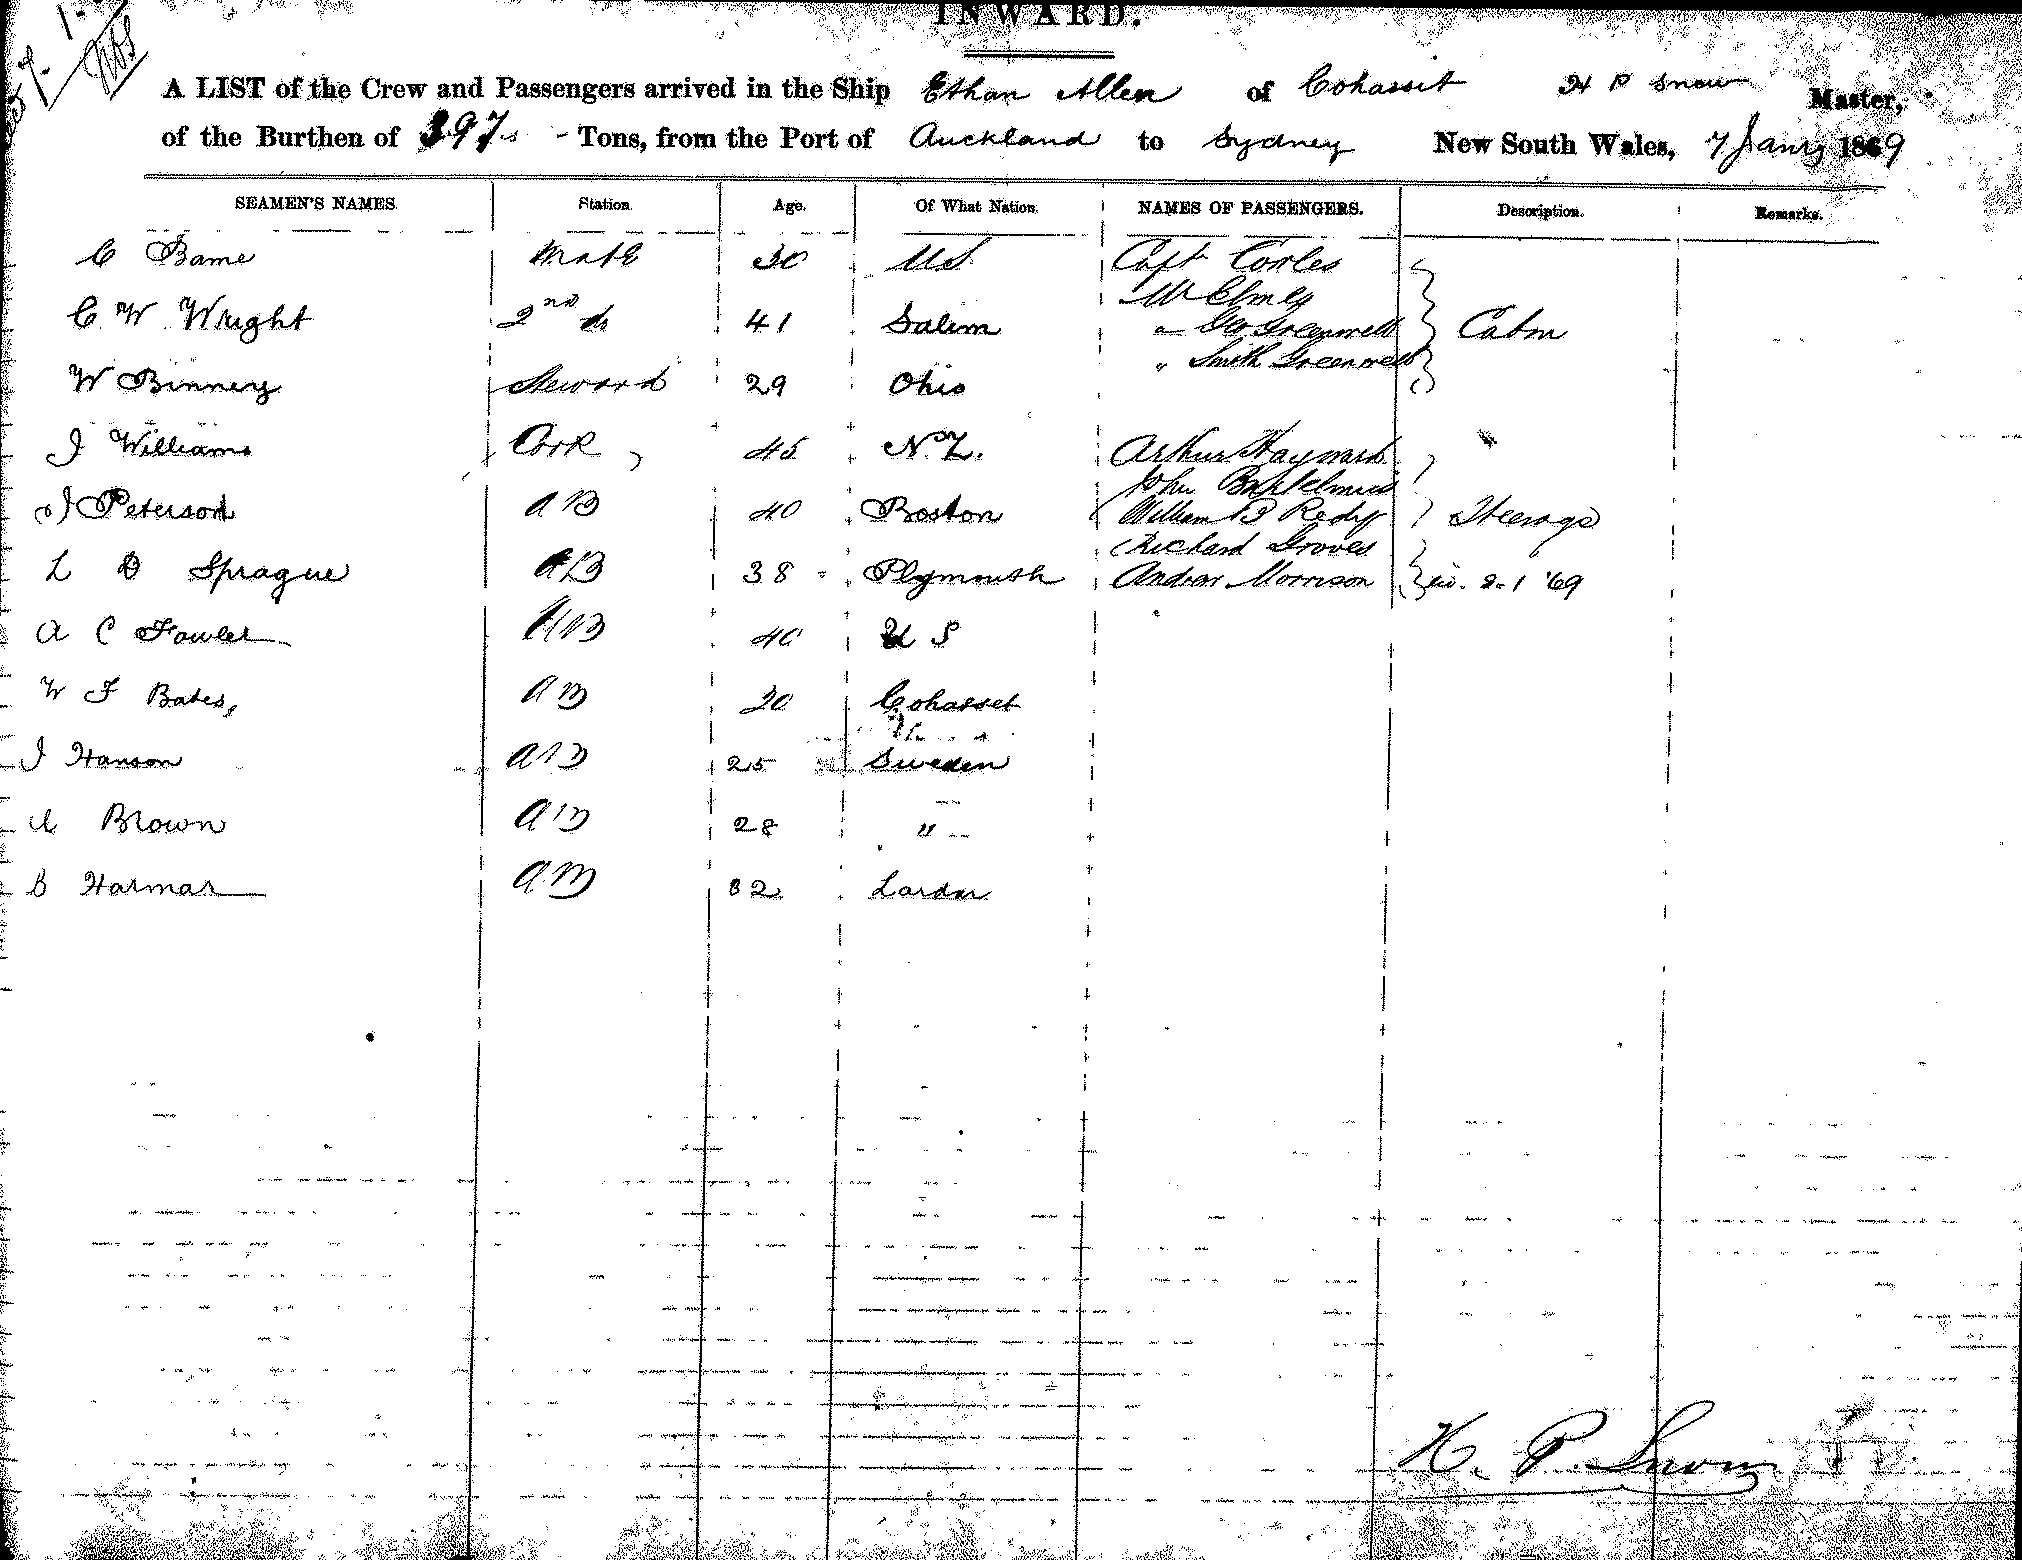 INWARD.
A LIST of the Crew and Passengers arrived in the Ship Ethan Allen of Cohasset H P Snow Master,
of the Burthen of 397 Tons, from the Port of Auckland to Sydney New South Wales, 7 Jany 1869
SEAMEN'S NAMES Station. Age. Of What Nation. NAMES OF PASSENGERS. Description. Remarks.
C Bame Mate 30 US Capt Corles
Mr
C W Wright 2nd do 41 Salem " Geo Greenwell Cabin
" Smith Greenwell
W Binney Steward 29 Ohio
J Williams Cook 45 N.Z. Arthur Hayward
John
J Peterson AB 40 Boston William B Steerage
Richard Groves
L D Sprague AB 38 Plymouth Andrew Morrison 2-1 '69
A C Fowler AB 40 U S
W F Bates, AB 20 Cohasset
J Hanson AB 25 Sweden
Brown AB 28 "
B Harmar AB 32
H. P. Snow